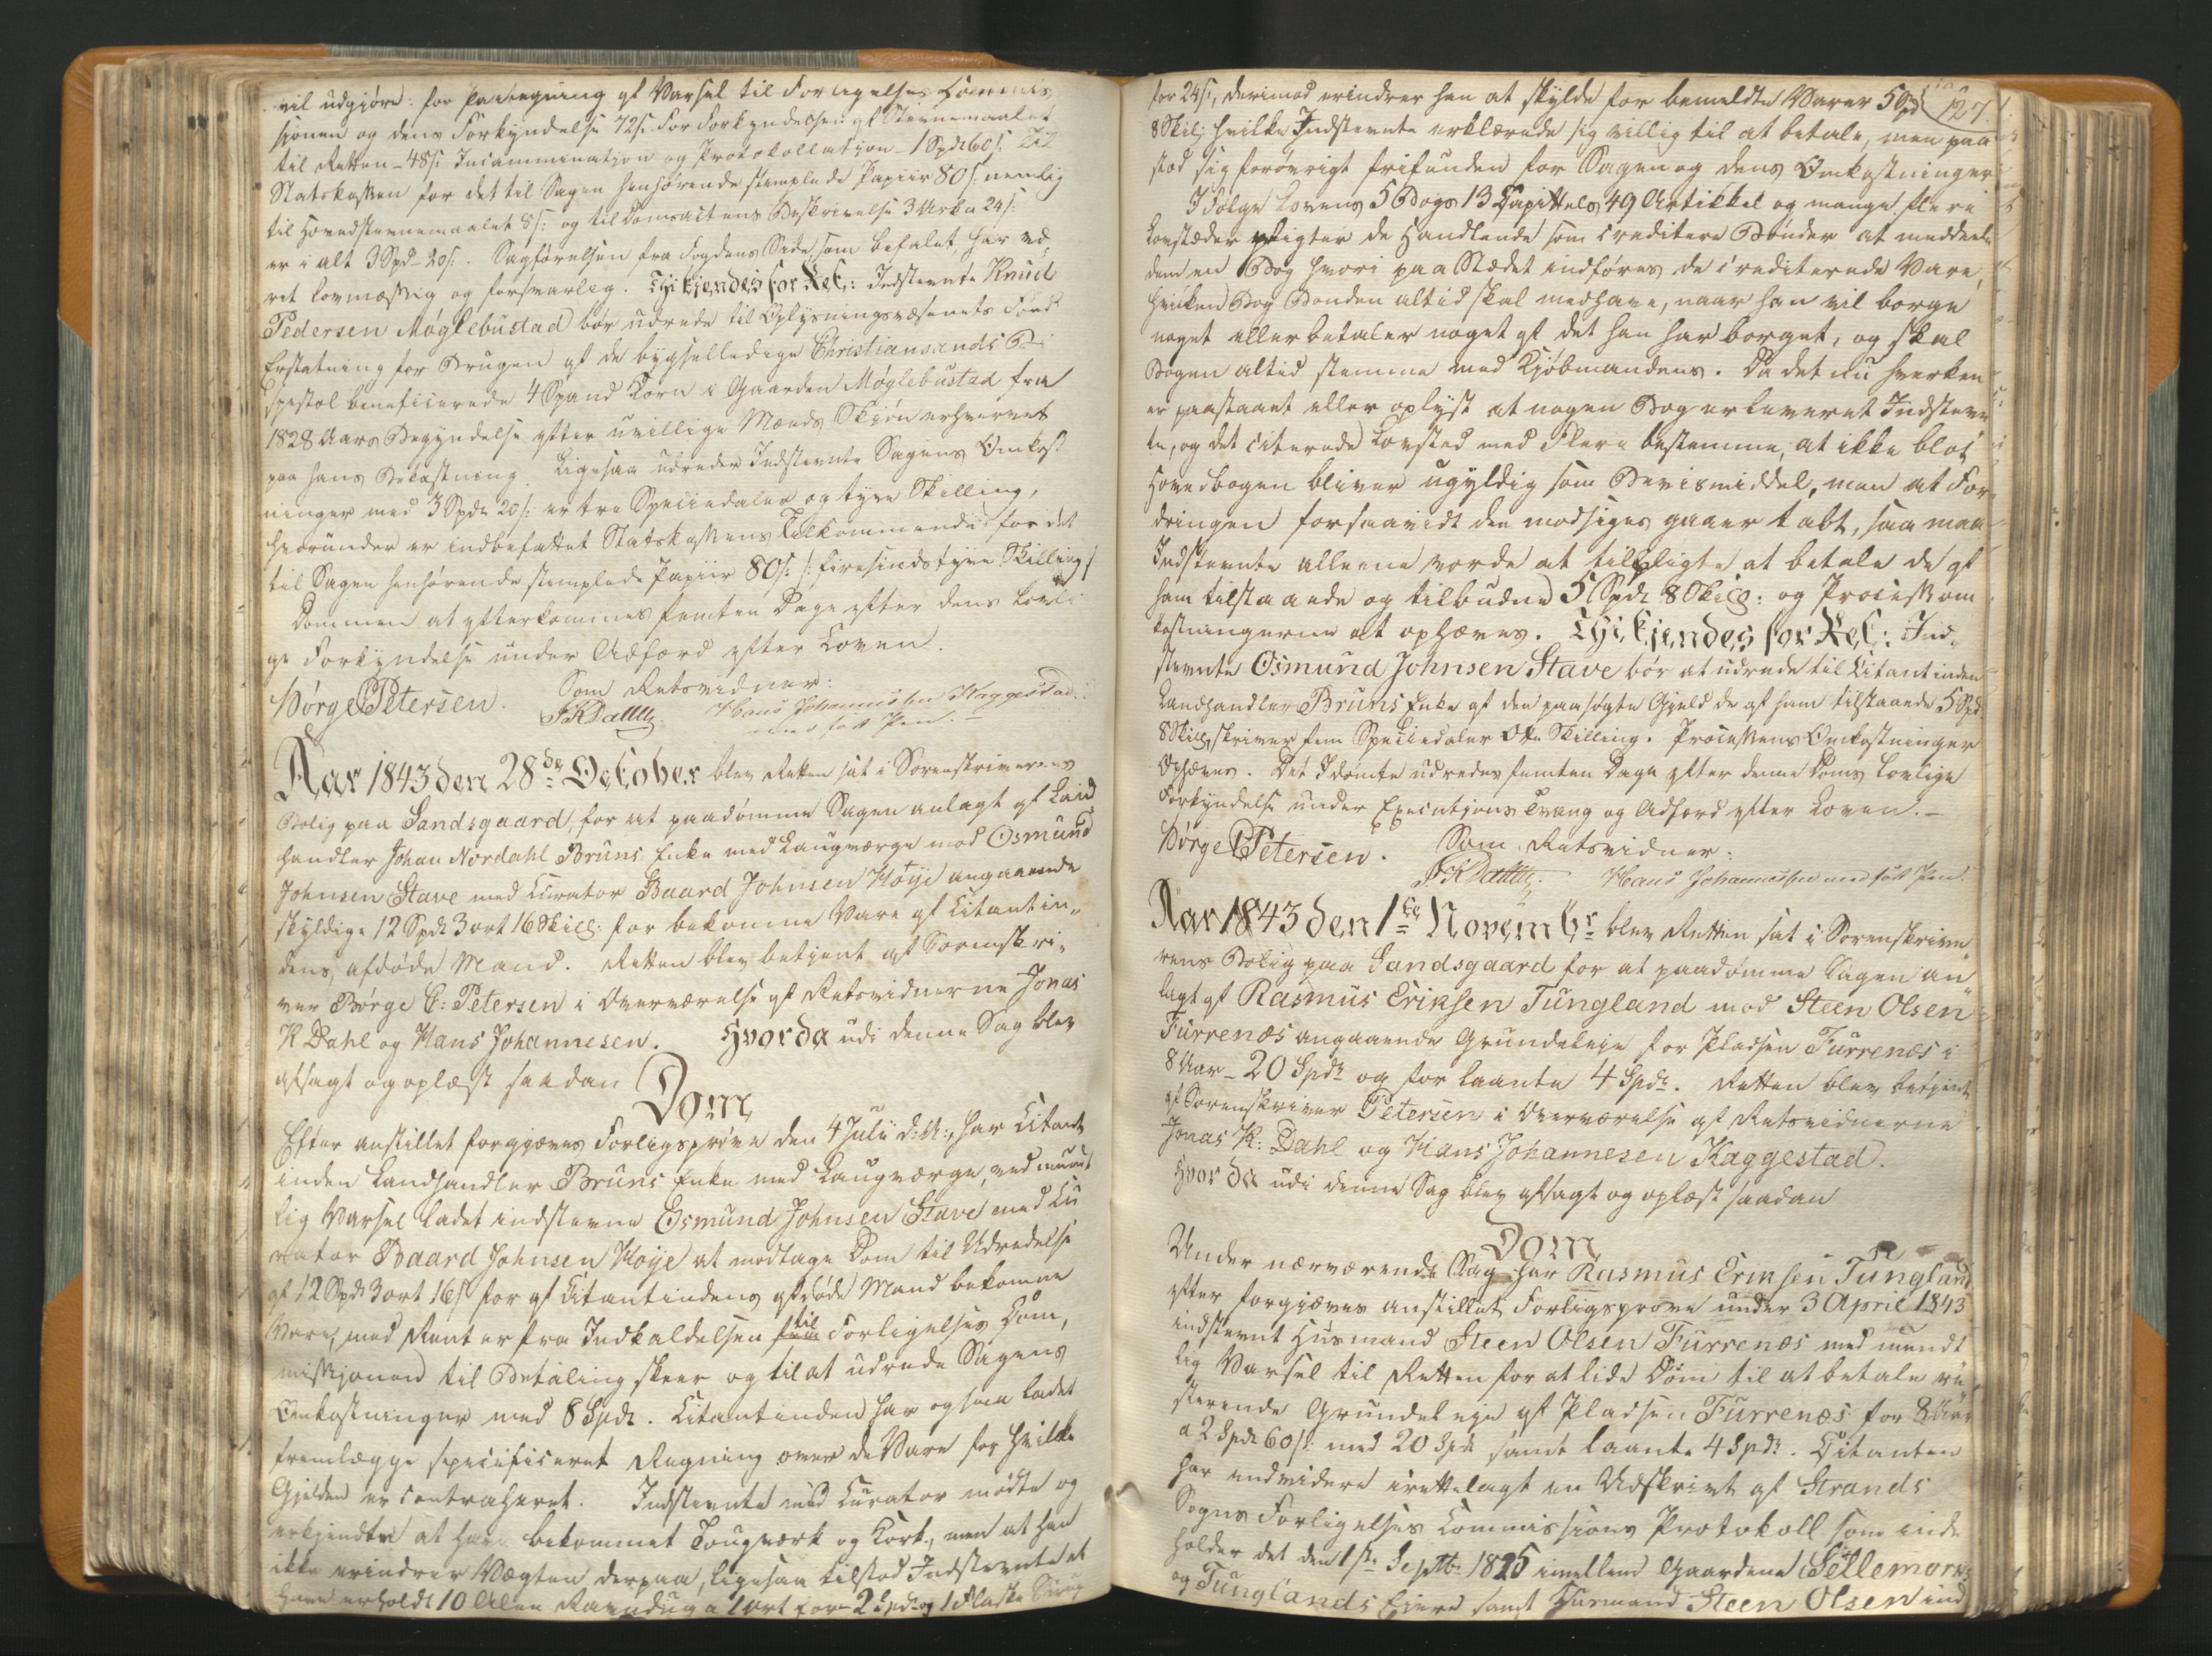 vil udgjøre: for Paategning af Varsel til Forligelses Commis
sjonen og dens Forkyndelse 72 s. For Forkyndelsen af Stevnemaalet
til Retten - 48 s. Incammination og Protokollation - 1 Spd 60 s. Til
Statskassen for det til Sagen henhørende stemplede Papiir 80 s. nemlig
til Hovedstevnemaalet 8 s: og til Domsactens Beskrivelse 3 Ark a 24 s.
er i alt 3 Spd - 20 s. Sagførelsen fra Fogdens Side som befalet, har væ
ret lovmæssig og forsvarlig. Thi kjendes for Ret: Indstevnte Knud
Pedersen Møglebustad bør udrede til Oplysningsvæsenets Fond
Erstatning for Brugen af de bygselledige Christiansands Bi
spestol beneficerede 4 Spand Korn i Gaarden Møglebustad fra
1828 Aars Begyndelse efter uvillige Mænds Skjøn erhvervet
paa hans Bekostning. Ligesaa udreder Indstevnte Sagens Omkost
ninger med 3 Spdr 20 s: er tre Speciedaler og tyve Skilling,
hvorunder er indbefattet Statskassens Tilkommende for det
til Sagen henhørende stemplede Papiir 80 s. /: firesindstyve Skilling:/
Dommen at efterkommes femten Dage efter dens lovli
ge Forkyndelse under Adfærd efter Loven.
Børge Petersen. Som Retsvidner:
JKDahl Hans Johannessen Kaggestad
medført Pen. -
Aar 1843 den 28de October blev Retten sat i Sorenskriverens
Bolig paa Sandsgaard, for at paadømme Sagen anlagt af Land
handler Johan Nordahl Bruns Enke med Laugværge mod Osmund
Johnsen Stave med Curator Baard Johnsen Høye angaaende
skyldige 12 Spd 3 ort 16 Skill: for bekomne Vare af Citantin„
dens afdøde Mand. Retten blev betjent af Sorenskri„
ver Børge C: Petersen i Overværelse af Retsvidnerne Jonas
K Dahl og Hans Johannesen. Hvorda udi denne Sag blev
afsagt og oplæst saadan
Dom
Efter anstillet forgjæves Forligsprøve den 4 Julii d: A:, har Citant
inden Landhandler Bruns Enke med Laugværge, ved mundt
lig Varsel ladet indstevne Osmund Johnsen Stave med Cu
rator Baard Johnsen Høye at modtage Dom til Udredelse
af 12 Spd 3 ort 16 s for af Citantindens afdøde Mand bekomne
Vare, med Renter fra Indkaldelsen til Forligelses Com,
missjonen til Betaling skeer og til at udrede Sagens
Omkostninger med 8 Spdr. Citantinden har ogsaa ladet
fremlægge specificeret Regning over de Vare for hvilke
Gjelden er contraheret. Indstevnte med Curator mødte og
erkjendte at have bekommet Tougværk og Kort, men at han
ikke erindrer Vægten derpaa, ligesaa tilstod Indstevnte at
have erholdt 10 Alen Ravndug a 1 Ort for 2 Spdr og 1 Flaske Sirup
127.
for 24 s, derimod erindrer han at skylde for bemeldte Varer 5 Spd
8 Skil; hvilke Indstevnte erklærede sig villig til at betale, men paa
stod sig forøvrigt frifunden for Sagen og dens Omkostninger
Ifølge Lovens 5 Bogs 13 Capittels 49 Artikkel og mange flere
Lovstæder pligter de Handlende som creditere Bønder at meddeele
dem en Bog hvori paa Stædet indføres de crediterede Vare,
hvilken Bog Bonden altid skal medhave, naar han vil borge
noget eller betaler noget af det han har borget, og skal
Bogen altid stemme med Kjøbmandens. Da det nu hverken
er paastaaet eller oplyst at nogen Bog er leveret Indstevn
te, og det citerede Lovsted med Flere bestemme, at ikke blot
Hovedbogen bliver ugyldig som Beviismiddel, men at For
dringen forsaavidt den modsiges gaaer tabt, saa maa
Indstevnte alleene vorde at tilpligte at betale de af
ham tilstaaede og tilbudne 5 Spdr 8 Skill: og Processom
kostningerne at ophæves. Thi kjendes for Ret: Ind„
stevnte Osmund Johnsen Stave bør at udrede til Citantinden
Landhandler Bruns Enke af den paasøgte Gjeld de af ham tilstaaede 5 Spd
8 Skill, skriver fem Speciedaler Otte Skilling. Processens Omkostninger
Ophæves. Det Idømte udredes femten Dage efter denne Doms lovlige
Forkyndelse under Executions Tvang og Adfærd efter Loven. -
Børge Petersen. Som Retsvidner:
JKDahl Hans Johannessen med ført Pen.
Aar 1843 den 1te Novembr blev Retten sat i Sorenskrive
rens Bolig paa Sandsgaard for at paadømme Sagen an„
lagt af Rasmus Eriksen Tungland mod Steen Olsen
Furrenæs angaaende Grundeleje for Pladsen Furrenæs i
8 Aar - 20 Spdr og for laante 4 Spdr. Retten blev betjent
af Sorenskriver Petersen i Overværelse af Retsvidnerne
Jonas K: Dahl og Hans Johannesen Kaggestad.
Hvor da udi denne Sag blev afsagt og oplæst saadan
Dom
Under nærværende Sag har Rasmus Eriksen Tungland
efter forgjæves anstillet Forligsprøve under 3 April 1843
indstevnt Huusmand Steen Olsen Furrenæs med mundt
lig Varsel til Retten for at lide Dom til at betale re
sterende Grundeleje af Pladsen Furrenæs for 8 Aar
a 2 Spdr 60 s: med 20 Spdr samt laante 4 Spdr. Citanten
har endvidere irettelagt en Udskrivt af Strands
Sogns Forligelses Commissions Protokoll som inde
holder det den 1ste Septbr 1825 imellem Gaardene Settemors
og Tunglands Eiere samt Huusmand Steen Olsen ind